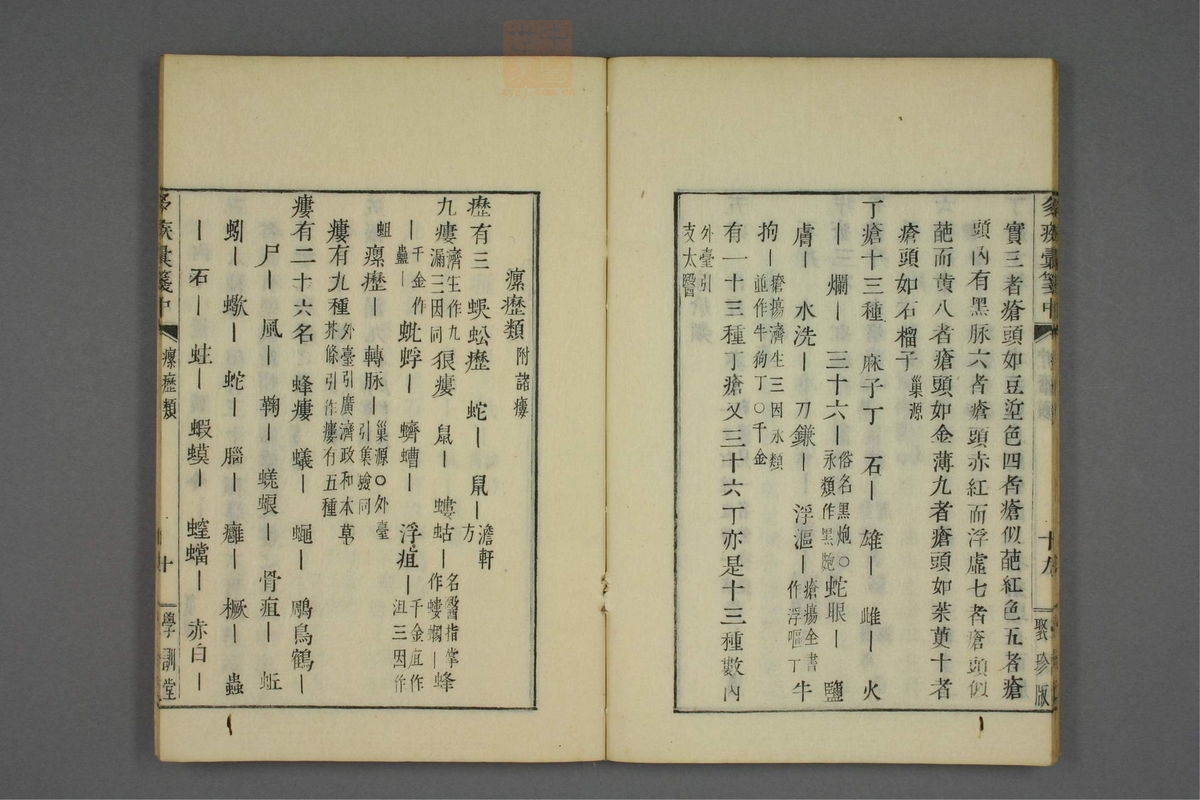 實三者瘡頭如豆㙮色四者瘡似葩紅色五者瘡
頭內有黑脉六者瘡頭赤紅而浮虛七者瘡頭似
葩而黄八者瘡頭如金薄九者瘡頭如茱萸十者
瘡頭如石榴子巢源
丁瘡十三種 麻子丁 石｜ 雄｜ 雌｜ 火
｜ 爛｜ 三十六｜俗名黑炮○永類作黑皰 蛇眼｜ 鹽
膚｜ 水洗｜ 刀鎌｜ 浮漚｜瘡瘍全書作浮嘔丁 牛
拘｜瘡瘍濟生三因永類並作牛狗丁○千金
有一十三種丁瘡又三十六丁亦是十三種數內
外臺引支太醫
聚珍版
瘰癧類附諸瘻
癧有三 蜈蚣癧 蛇｜ 鼠｜澹軒方
九瘻濟生作九漏三因同 狼瘻 鼠｜ 螻蛄｜名醫指掌作螻蟈｜ 蜂
｜千金作蟲｜ 蚍蜉｜ 蠐螬｜ 浮疽｜千金疽作沮三因作
蛆 瘰癧｜ 轉脉｜巢源○外臺引集驗同
瘻有九種外臺引廣濟政和本草芥條引作瘻有五種
瘻有二十六名 蜂瘻 蟻｜ 蠅｜ 鵰鳥鶴｜
尸｜ 風｜ 鞠｜ 蜣蜋｜ 骨疽｜ 蚯
蚓｜ 蠍｜ 蛇｜ 腦｜ 癰｜ 橛｜ 蟲
｜ 石｜ 蛀｜ 蝦蟆｜ 螳蟷｜ 赤白｜
瘰癧類
學訓堂